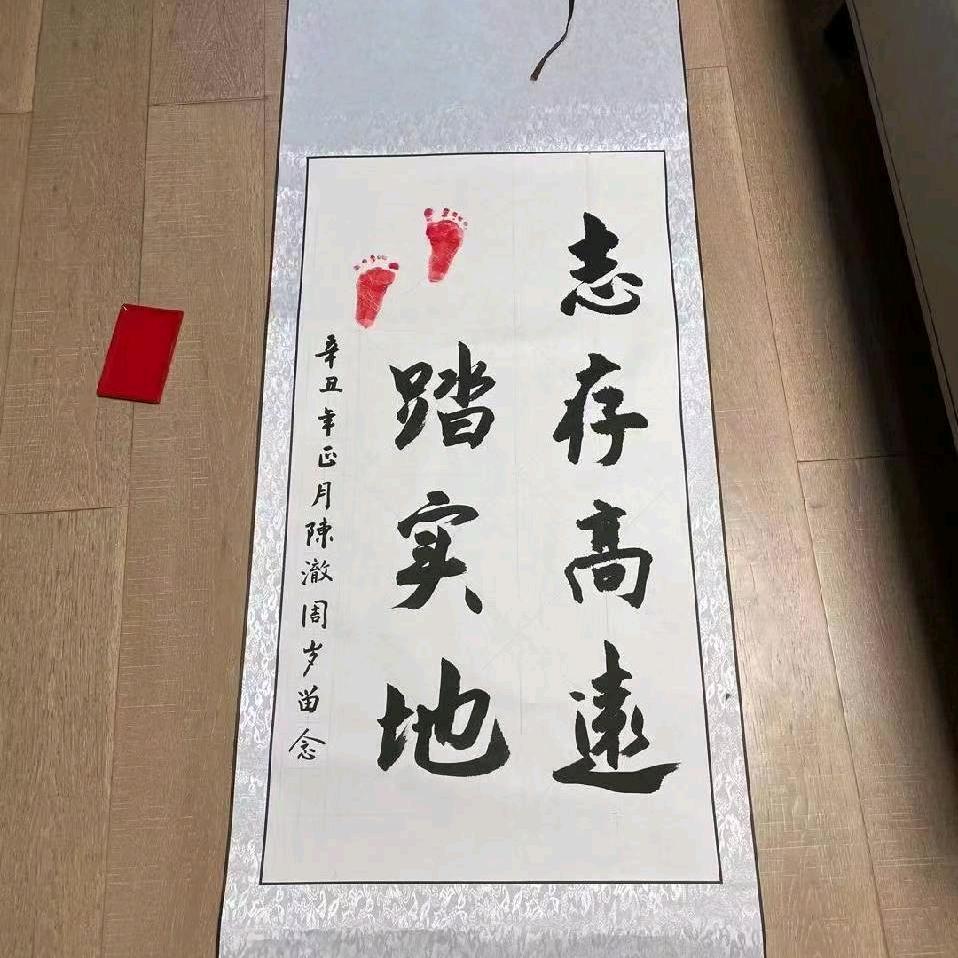 志存高遠
踏实地
辛丑年正月陳澈周岁留念